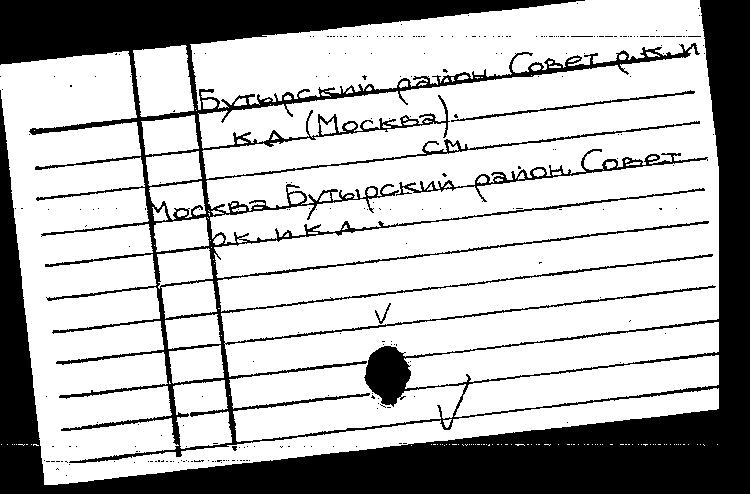 Бутырский район. Совет р.к. и
к.д. (Москва).
см.
Москва. Бутырский район. Совет
р.к. и к.д.